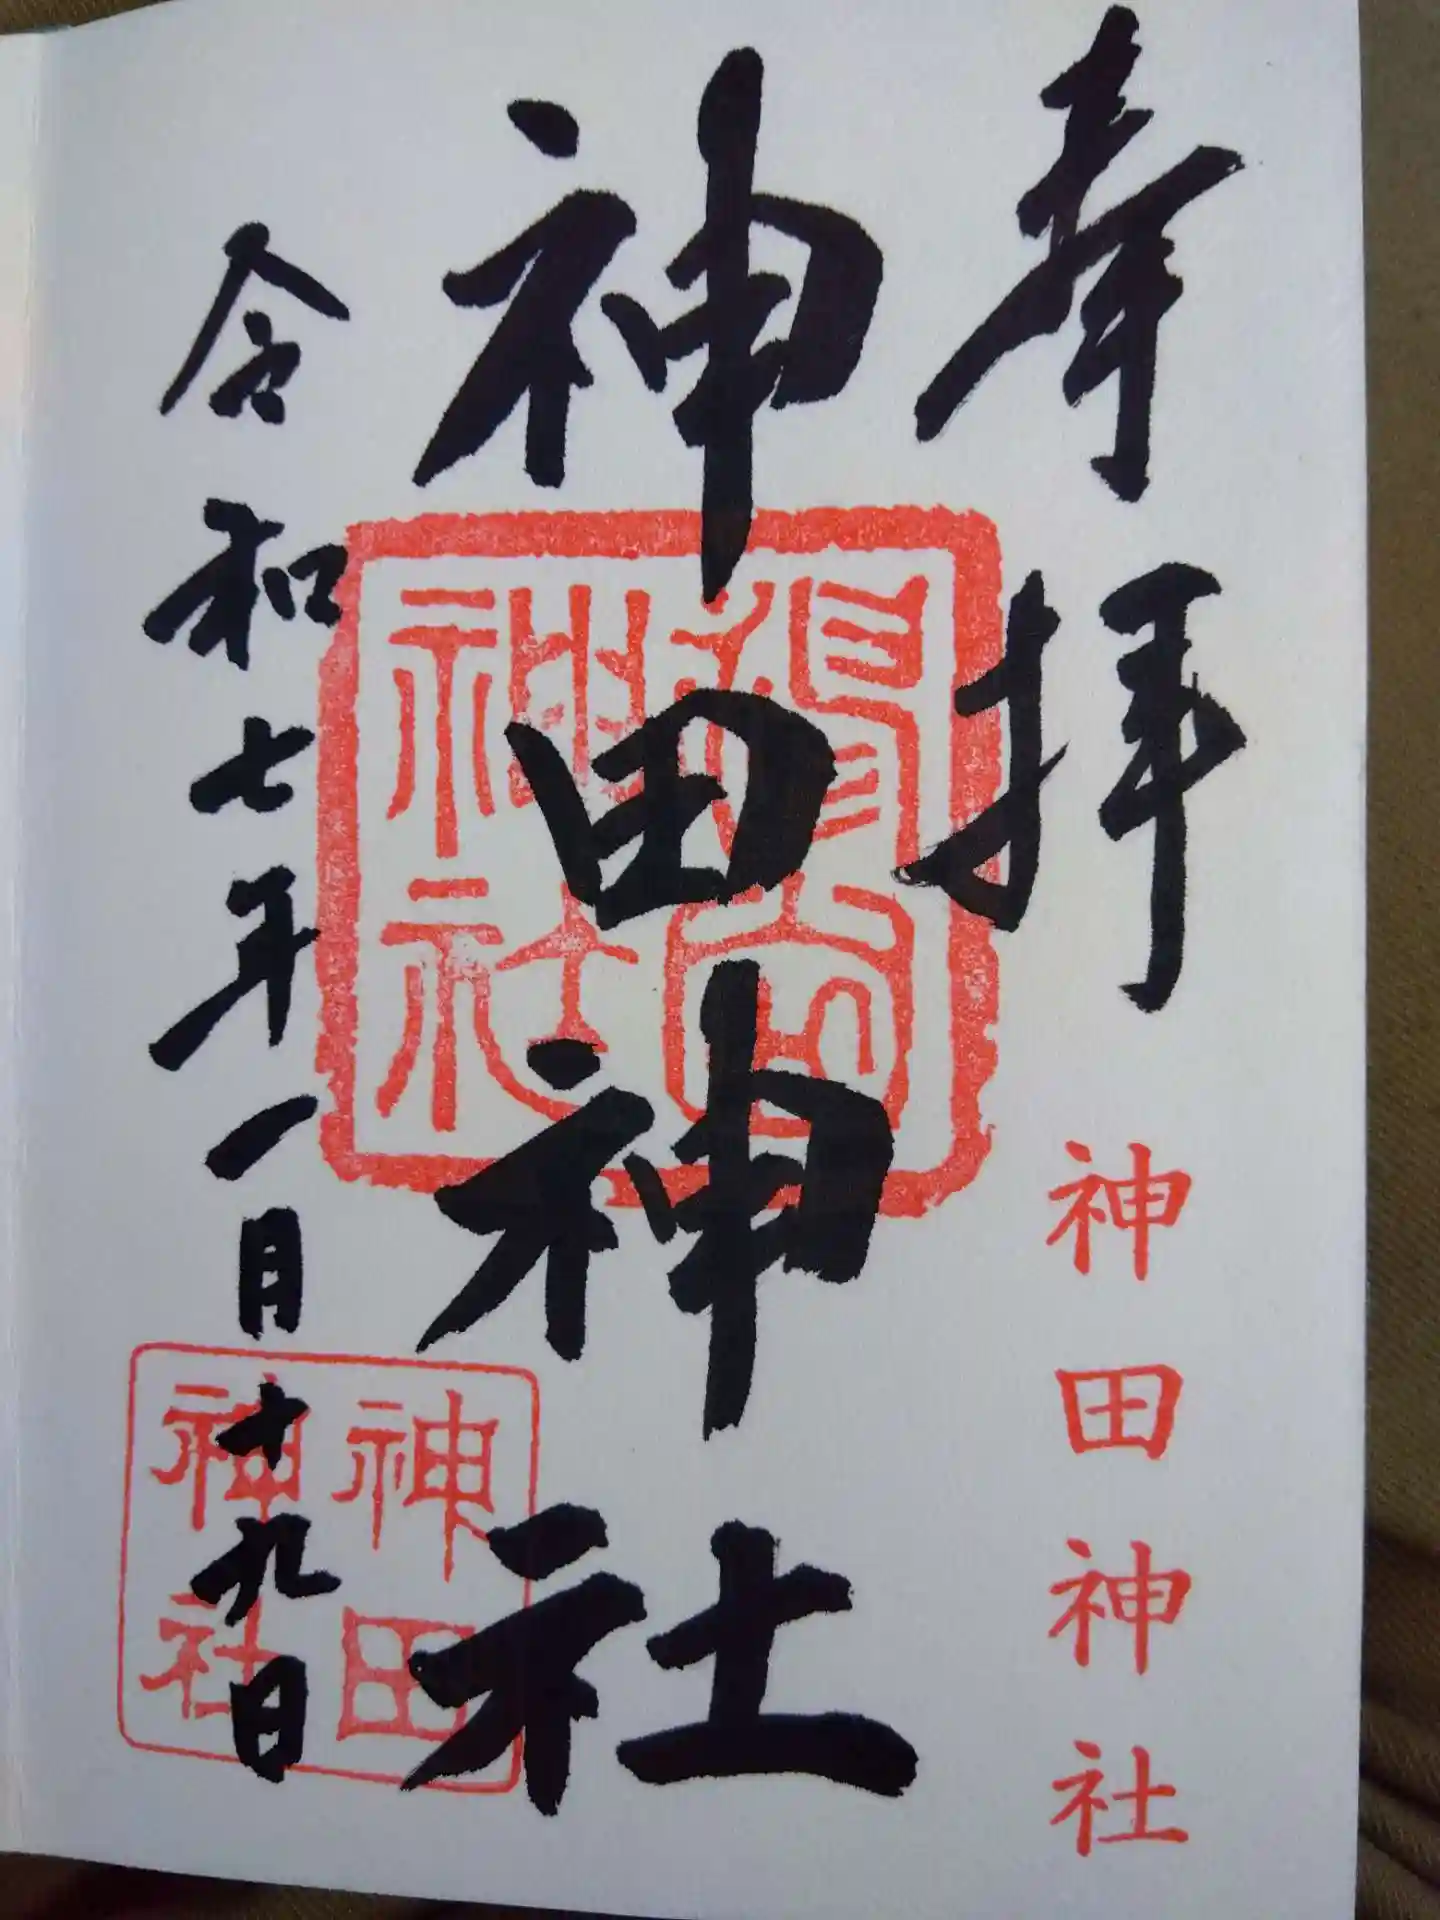 奉拝
神田神社
神田神社
神社
令和七年一月十九日
神田
神社